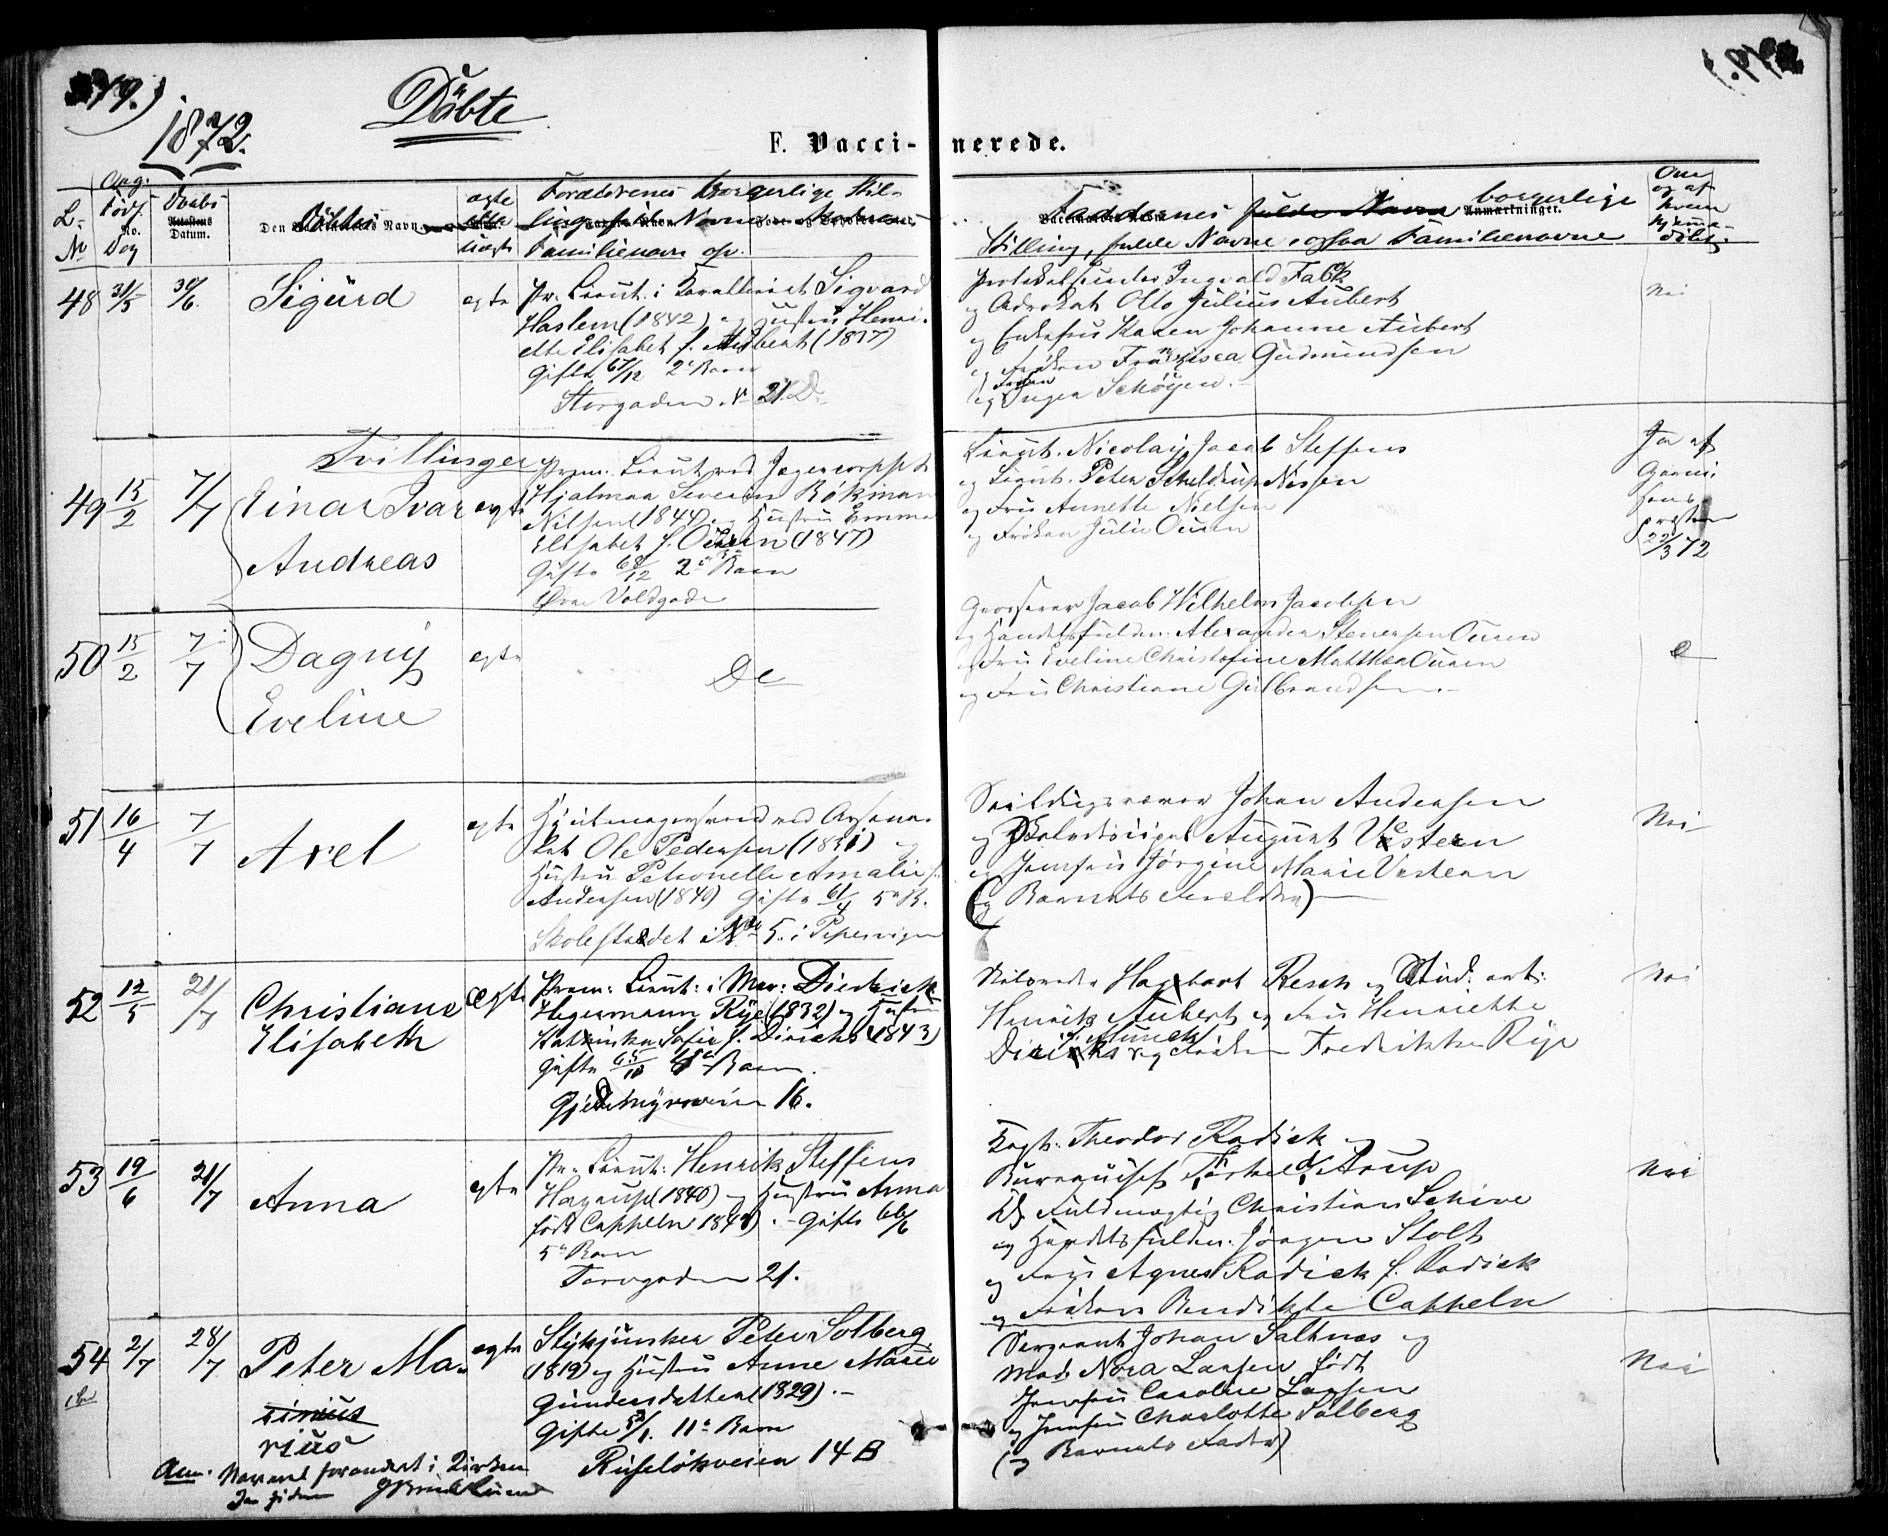 1872.
Döbte
F. Vaccinerede.
L. No
Dag
Daabs Datum.
Döbtes Navn
ægte
uægte
Forældrenes borgerlige Stil-
Familienavn op.
Faddernes borgerlige
Stilling, fulde Navne ogsaa Familienavne
48 31/5 30/6 Sigurd ægte
Pr. Lieut. i Kavalleriet Sigvard
Haslem (1842) og Hustru Henri-
ette Elisabet f. Aubert (1837)
Gifte 67/12 2' Barn
Storgaden No 21. D.
og Advokat Otto Julius Aubert
og Enkefru Karen Johanne Aubert
og Frøken Francisca Gudmundsen
og Frøken Inga Schöyen.
Nei
Tvillinger
49 15/2 7/7 Einar Ivar ægte
Andreas
Prem. Lieut. ved Jægercorpset
Hjalmar Severin Bökman
Nilsen (1844) og Hustru Emma
Elisabet f. Ouren (1847)
Gifte 68/12 2' Barn
Øvre Voldgade
Lieut. Nicolay Jacob Steffens
og Lieut. Peter Scheldrup Nissen
og Fru Annette Nielsen
og Frøken Julie Ouren
Ja af
Garni-
sons-
præsten
22/3 72
50 15/2 7/7 Dagny ægte
Eveline
De
Grosserer Jacob Wilhelm Jacobsen
og Handelsfuldm. Alexander Stenersen Ouren
og Fru Eveline Christofine Matthea Ouren
og Fru Christiane Gulbrandsen.
51 16/4 7/7 Axel ægte
Hjulmagersvend ved Arsena-
let Ole Pedersen (1831) og
Hustru Petronelle Amalie f.
Andersen (1840) Gifte 61/4 5' B.
Skolestrædet No 5. i Pipervigen
Johan Andersen
og August Vestern
og Jomfru Jörgine Marie Vestern
(og Barnets Forældre)
Nei
52 12/5 21/7 Christiane Ægte
Elisabeth
Prem: Lieut: i Mar: Diedrick
Hegermann Rye (1832) og Hustru
Kathinka Sofie f. Diricks (1843)
Gifte 65/10 Barn.
Gjedemyrsveien 16.
Hagbart Resch og Stud. art:
Henrik Aubert og Fru Henriette
Diricks f. Munck og Frøken Fredrikke Rye
Nei
53 19/6 21/7 Anna ægte
Pr. Lieut: Henrik Steffens
Hagerup (1840) og Hustru Anna
født Cappeln 184 . - Gifte 66/6
5' Barn
Torvgaden 21.
Kapt. Theodor Radick og
Bureauchef Thorkel Aarup
Fuldmægtig Christian Schive
og Handelsfuldm. Jørgen Stolt
og Fru Agnes Radick f. Radick
og Frøken Bendikte Cappeln
Nei
54 2/7 28/7 Peter Ma- ægte
rius
Stykjunker Peter Solberg
(1819) og Hustru Anne Marie
Gundersdatter (1829). -
Gifte 11' Barn
Ruseløkveien 14 B
Sergeant Johan Saltnæs og
Mad. Nora Larsen født
Jomfru Caroline Larsen
og Jomfru Charlotte Solberg
(og Barnets Fader)
Nei
Anm. Navnet forandret i Kirken